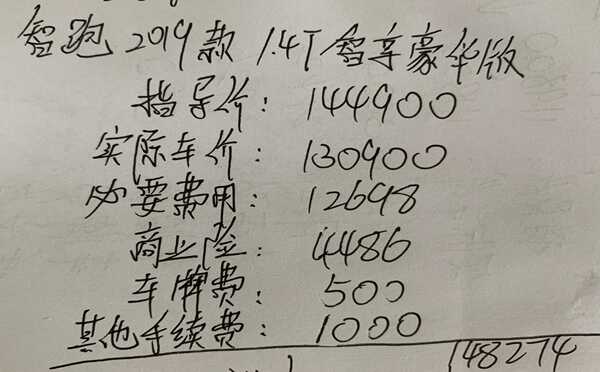 智跑 2019款 1.4T 智享豪华版
指导价: 144900
实际车价: 130900
必要费用: 12698
商业险: 4486
车牌费: 500
其他手续费: 1000
148274